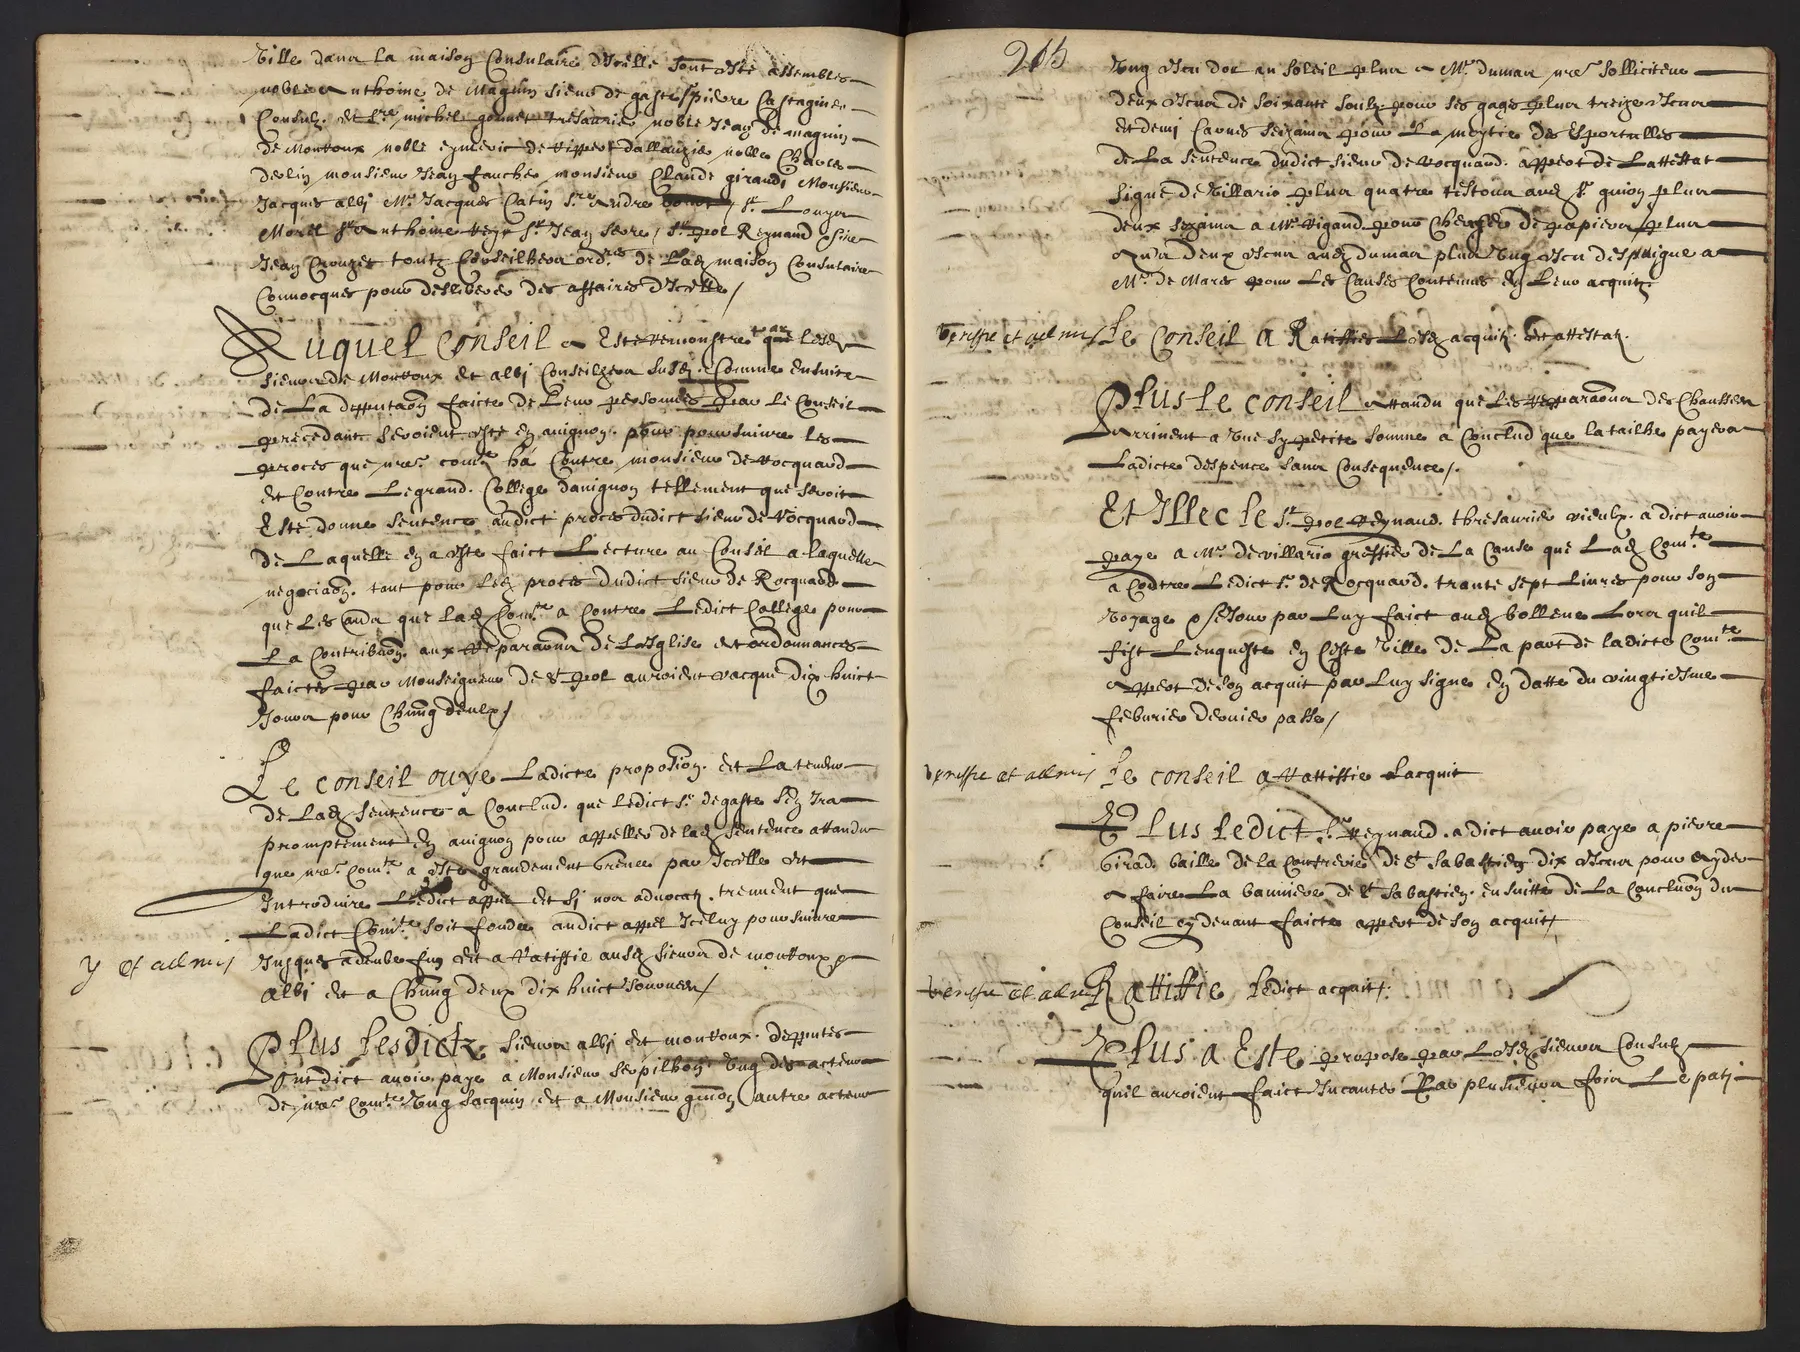 Ville dans la maison Consulaire d'Icelle sont este assembles
noble Anthoine de Magnin sieur de gaste Espierre Castagnier
Consulz et Sre michel gonnet tresaurier noble Jean de magnin
de Montoux noble eymeric de dallauzier noble Charles
devlin monsieur Jean faucher monsieur Claude giraudi Monsieur
Jacques albi Me Jacques Catin Sre Andre Sr Louys
Morel Sr Anthoine Sr Jean serre / Sr pol Reynaud Sire
Jean Crouzet toutz Conseilhers ordres de Lad maison Consulaire
Conuocques pour deslibere des affaires d'Icelle /
Auquel Conseil a Este remonstre par lesd
sieurs de Montoux et albi Conseilhers susd Comme ensuite
de La depputaon faicte de Leur personnes par Le Conseil
precedant seroient este en auignon pour poursuivre les
proces que nre comte ha Contre monsieur de Rocquard
et Contre Le grand College dauignon tellement que seroit
Este donne sentence audict proces dudict sieur de Rocquard
de Laquelle en a este faict Lecture au Conseil a laquelle
negociaon tant pour led proces dudict sieur de Rocquard
que Les Causes que lad Comte a Contre Ledict College pour
La Contribuon aux reparaons de Leglise et ordonnances
faictes par Monseigneur de St pol auroient vacque Dix huict
Jours pour Chung deulx /
Le conseil ouye Ladicte proposion et La teneur
de Lad sentence a Conclud que ledict Sr de gaste sen Ira
promptement en auignon pour appeller de lad sentence attandu
que nre Comte a este grandement greuee par Icelle et
Introduire Ledict appel et si nos aduocatz treuuent que
Ladict Comte soit fondee audict appel Iceluy poursuiure
Jusques a deube fin et a Ratiffie ausd sieurs de montoux &
y et admis
albi et a Chung deux dix huict Journees /
Plus Lesdictz sieurs albi et montoux depputes
ont dict auoir paye a Monsieur serpilhon Ung des acteurs
de nre Comte Ung sacquin et a Monsieur guion autre acteur
205
Ung escu dor au soleil plus a Mr dumas nre solliciteur
deux escus de soixante soulz pour ses gages plus treize escus
et demi Carnes sezains pour La moytie des Esportulles
de La sentence dudict sieur de Rocquard appert de Lattestat
signe de Villario plus quatre testons aud Sr guion plus
deux sezains a Me Rigaud pour Charges de papiers plus
deux escus aud dumas plus Ung escu despaigne a
Mr de Mares pour Les Causes Contenues en Leur acquitz
veriffie et admis Le Conseil a Ratiffies Lesd acquitz et attestat.
Plus Le conseil attandu que Les repparaons des Chaussees
arrivent a Une sy petite somme a Conclud que La tailhe payera
Ladicte despence sans Consequence /.
Et Illec le Sr pol reynaud thresaurier vieulx a dict auoir
paye a Mr de villario greffier de La Cause que Lad Comte
a Contre Ledict Sr de Rocquard trante sept Liures pour son
voyage & seJour par Luy faict aud bollene Lors quil
fist Lenqueste en ceste Ville de La part de ladicte Comte
appert de son acquit par Luy signe en datte du vingtiesme
februrier dernier passe /
veriffie et admis Le conseil a Rattiffie Lacquit
Plus Ledict Sr Reynaud a dict auoir paye a pierre
Girad baille de la Confrerie de St sabastien dix escus pour ayder
a faire La banniere de St Sabastien en suitte de La Concluon du
Conseil cy deuant faicte appert de son acquit /
veriffie et admis Rattiffie Ledict acquit /.
Plus a Este propose par Lesd sieurs Consulz
quil auroient faict Incanter Par plusieurs fois Le pati